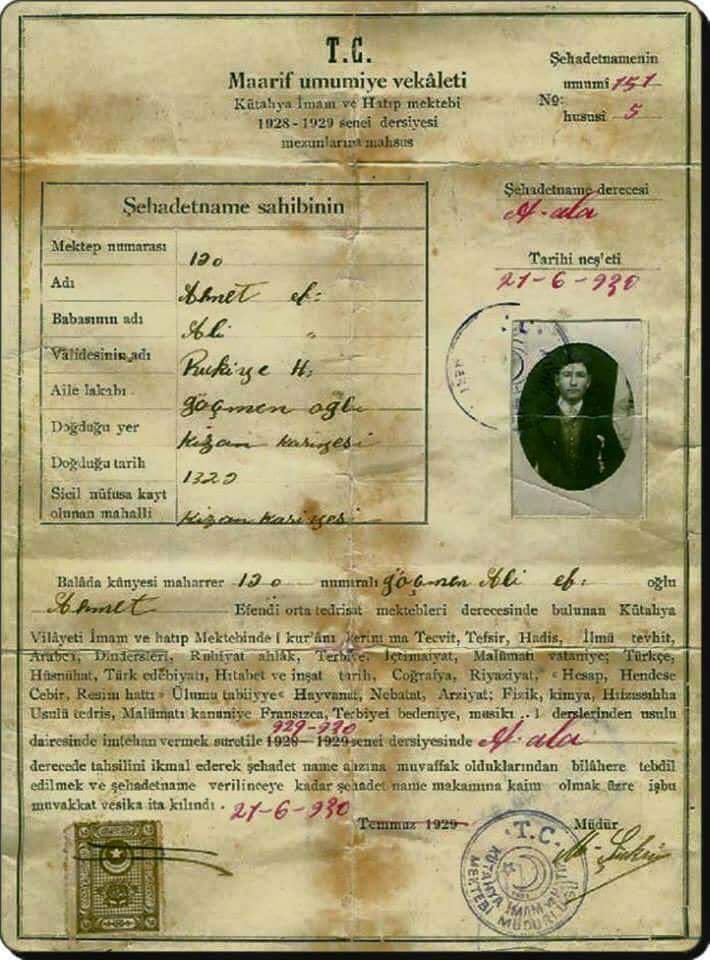 T.C.
Maarif umumiye vekâleti
Kütahya İmam ve Hatıp mektebi
1928 - 1929 senei dersiyesi
mezunlarına mahsus
Şehadetnamenin
umumî 151
No:
hususi 5
Şehadetname derecesi
A-ala
Tarihi neş'eti
21-6-930
Şehadetname sahibinin
Mektep numarası 120
Adı Ahmet ef:
Babasının adı Ali "
Válidesinin adı Rukiye H:
Aile lakabı göçmen oğlu
Doğduğu yer Kizan kariyesi
Doğduğu tarih 1320
Sicil nüfusa kayt
olunan mahalli Kizan kariyesi
Balâda künyesi maharrer 120 numıralı göçmen Ali ef: oğlu
Ahmet Efendi orta tedrisat mektebleri derecesinde bulunan Kütahya
Vilâyeti İmam ve hatıp Mektebinde kur'ânı kerim ma Tecvit, Tefsir, Hadis, İlmü tevhit,
Arabca, Dindersleri, Ruhiyat ahlâk, Terbiye. İçtimaiyat, Malûmatı vataniye; Türkçe,
Hüsnühat, Türk edebiyatı, Hıtabet ve inşat tarih, Coğrafya, Riyaziyat, « Hesap, Hendese
Cebir, Resim hattı » Ülumu tabiiyye « Hayvanat, Nebatat, Arziyat; Fizik, kimya, Hıfzıssıhha
Usulü tedris, Malûmatı kanuniye Fransızca, Terbiyei bedeniye, musiki derslerinden usulu
929-930
dairesinde imtehan vermek suretile 1928 - 1929 senei dersiyesinde A-ala
derecede tahsilini ikmal ederek şehadet name ahzına muvaffak olduklarından bilâhere tebdil
edilmek ve şehadetname verilinceye kadar şehadet name makamına kaim olmak üzre işbu
muvakkat vesika ita kılındı. 21-6-930
Temmuz 1929 Müdür
T.C.
KÜTAHYA İMAM VE
MEKTEBİ MÜDÜR